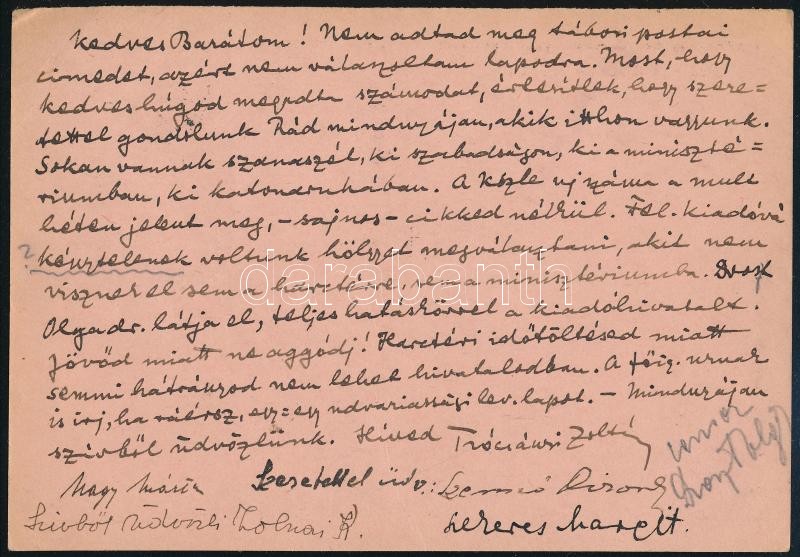 Kedves Barátom! Nem adtad meg tábori postai
címedet, azért nem válaszoltam lapodra. Most, hogy
kedves húgod megadta számodat, értesítlek, hogy szere=
tettel gondolunk Rád mindnyájan, akik itthon vagyunk.
Sokan vannak szanaszét, ki szabadságon, ki a miniszté=
riumban, ki katonaruhában. A Kszle új száma a mult
héten jelent meg, - sajnos - cikked nélkül. Fel. kiadóvá
? kénytelenek voltunk hölgyet megválasztani, akit nem
visznek el sem a harctérre, sem a minisztériumba. Droszt
Olga dr. látja el, teljes hatáskörrel a kiadóhivatalt.
Jövőd miatt ne aggódj! Harctéri időtöltésed miatt
semmi hátrányod nem lehet hivatalodban. A főig. urnak
is irj, ha ráérsz, egy=egy udvariassági lev. lapot. - Mindnyájan
szívből üdvözlünk. Híved Trócsányi Zoltán
Droszt Olga
Nagy Mária Szeretettel üdv.:
Szívből üdvözli Zolnai
Szekeres Margit.
darabanth